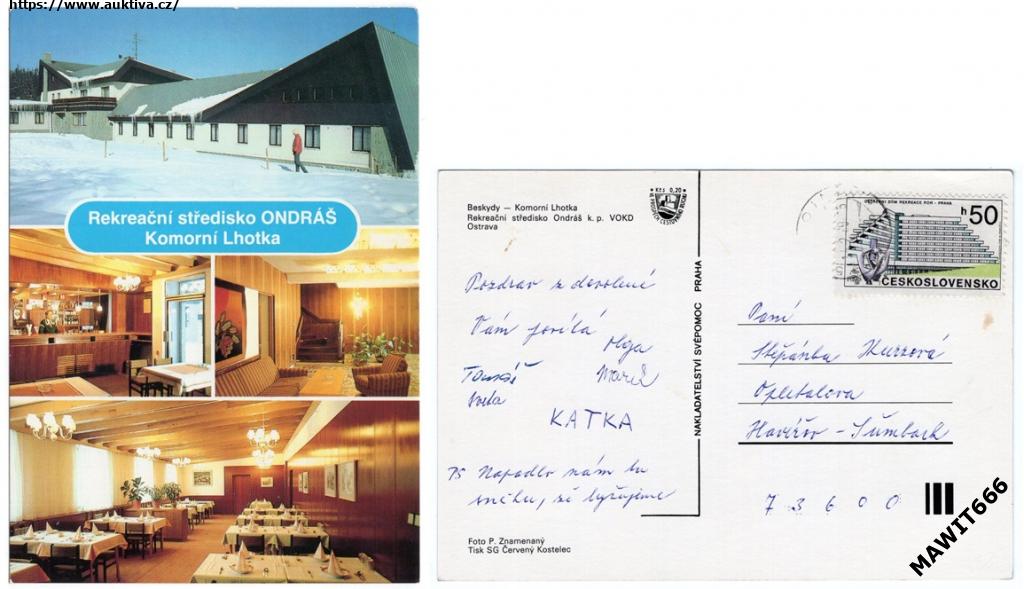 https://www.auktiva.cz/
Rekreační středisko ONDRÁŠ
Komorní Lhotka
Beskydy — Komorní Lhotka
Rekreační středisko Ondráš k. p. VOKD
Ostrava
Kčs 0,20
Pozdrav z dovolené
Vám posílá
Olga
Tomáš Marek
KATKA
PS Napadlo nám tu
sněhu, že lyžujeme
Foto P. Znamenaný
Tisk SG Červený Kostelec
NAKLADATELSTVÍ SVÉPOMOC PRAHA
ODBOROVÝ DŮM REKREACE ROH - PRAHA
h 50
ČESKOSLOVENSKO
Paní
Štěpánka
Opletalova
Havířov - Šumbark
73600
MAWIT666